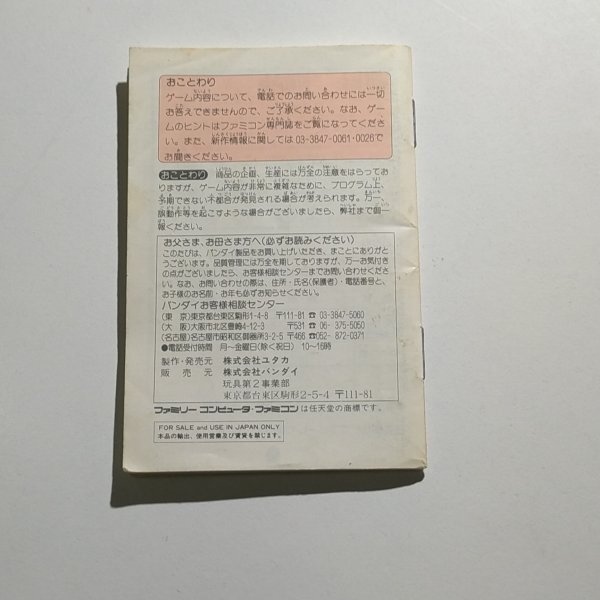 おことわり
ゲーム内容について、電話でのお問い合わせには一切
お答えできませんので、ご了承ください。なお、ゲー
ムのヒントはファミコン専門誌をご覧になってくださ
い。また、新作情報に関しては 03-3847-0061・0026で
お聞きください。
おことわり 商品の企画、生産には万全の注意をはらってお
りますが、ゲーム内容が非常に複雑なために、プログラム上、
予期できない不都合が発見される場合が考えられます。万一、
誤動作等を起こすような場合がございましたら、弊社まで御一
報ください。
お父さま、お母さま方へ(必ずお読みください)
このたびは、バンダイ製品をお買い上げいただき、まことにありがと
うございます。品質管理には万全を期しておりますが、万一お気付き
の点がございましたら、お客様相談センターまでお問い合わせくださ
い。なお、お問い合わせの際は、住所・氏名(保護者)・電話番号と、
お子様のお名前・お年も必ずお知らせください。
バンダイお客様相談センター
(東 京)東京都台東区駒形1-4-8 〒111-81 ☎03-3847-5060
(大 阪)大阪市北区豊崎4-12-3 〒531 ☎06-375-5050
(名古屋)名古屋市昭和区御器所3-2-5 〒466 ☎052-872-0371
●電話受付時間 月〜金曜日(除く祝日) 10〜16時
製作・発売元 株式会社ユタカ
販 売 元 株式会社バンダイ
玩具第2事業部
東京都台東区駒形2-5-4 〒111-81
ファミリー コンピュータ・ファミコンは任天堂の商標です。
FOR SALE and USE IN JAPAN ONLY
本品の輸出、使用営業及び賃貸を禁じます。